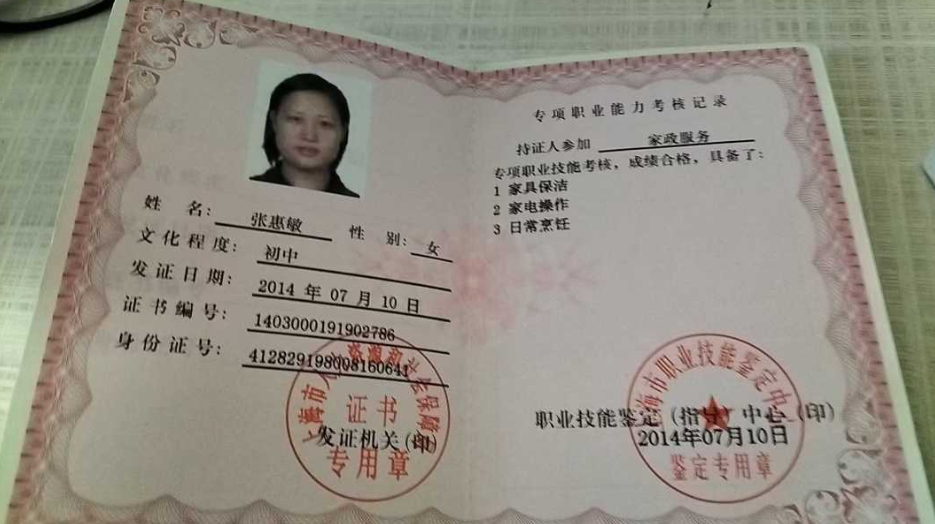 姓 名： 张惠敏 性 别： 女
文化程度： 初中
发证日期： 2014 年 07 月 10 日
证书编号： 1403000191902786
身份证号： 412829198008160641
证书
发证机关(印)
专用章
专项职业能力考核记录
持证人参加 家政服务
专项职业技能考核，成绩合格，具备了：
1 家具保洁
2 家电操作
3 日常烹饪
海市职业技能鉴定中
职业技能鉴定（指导）中心（印）
2014年07月10日
鉴定专用章